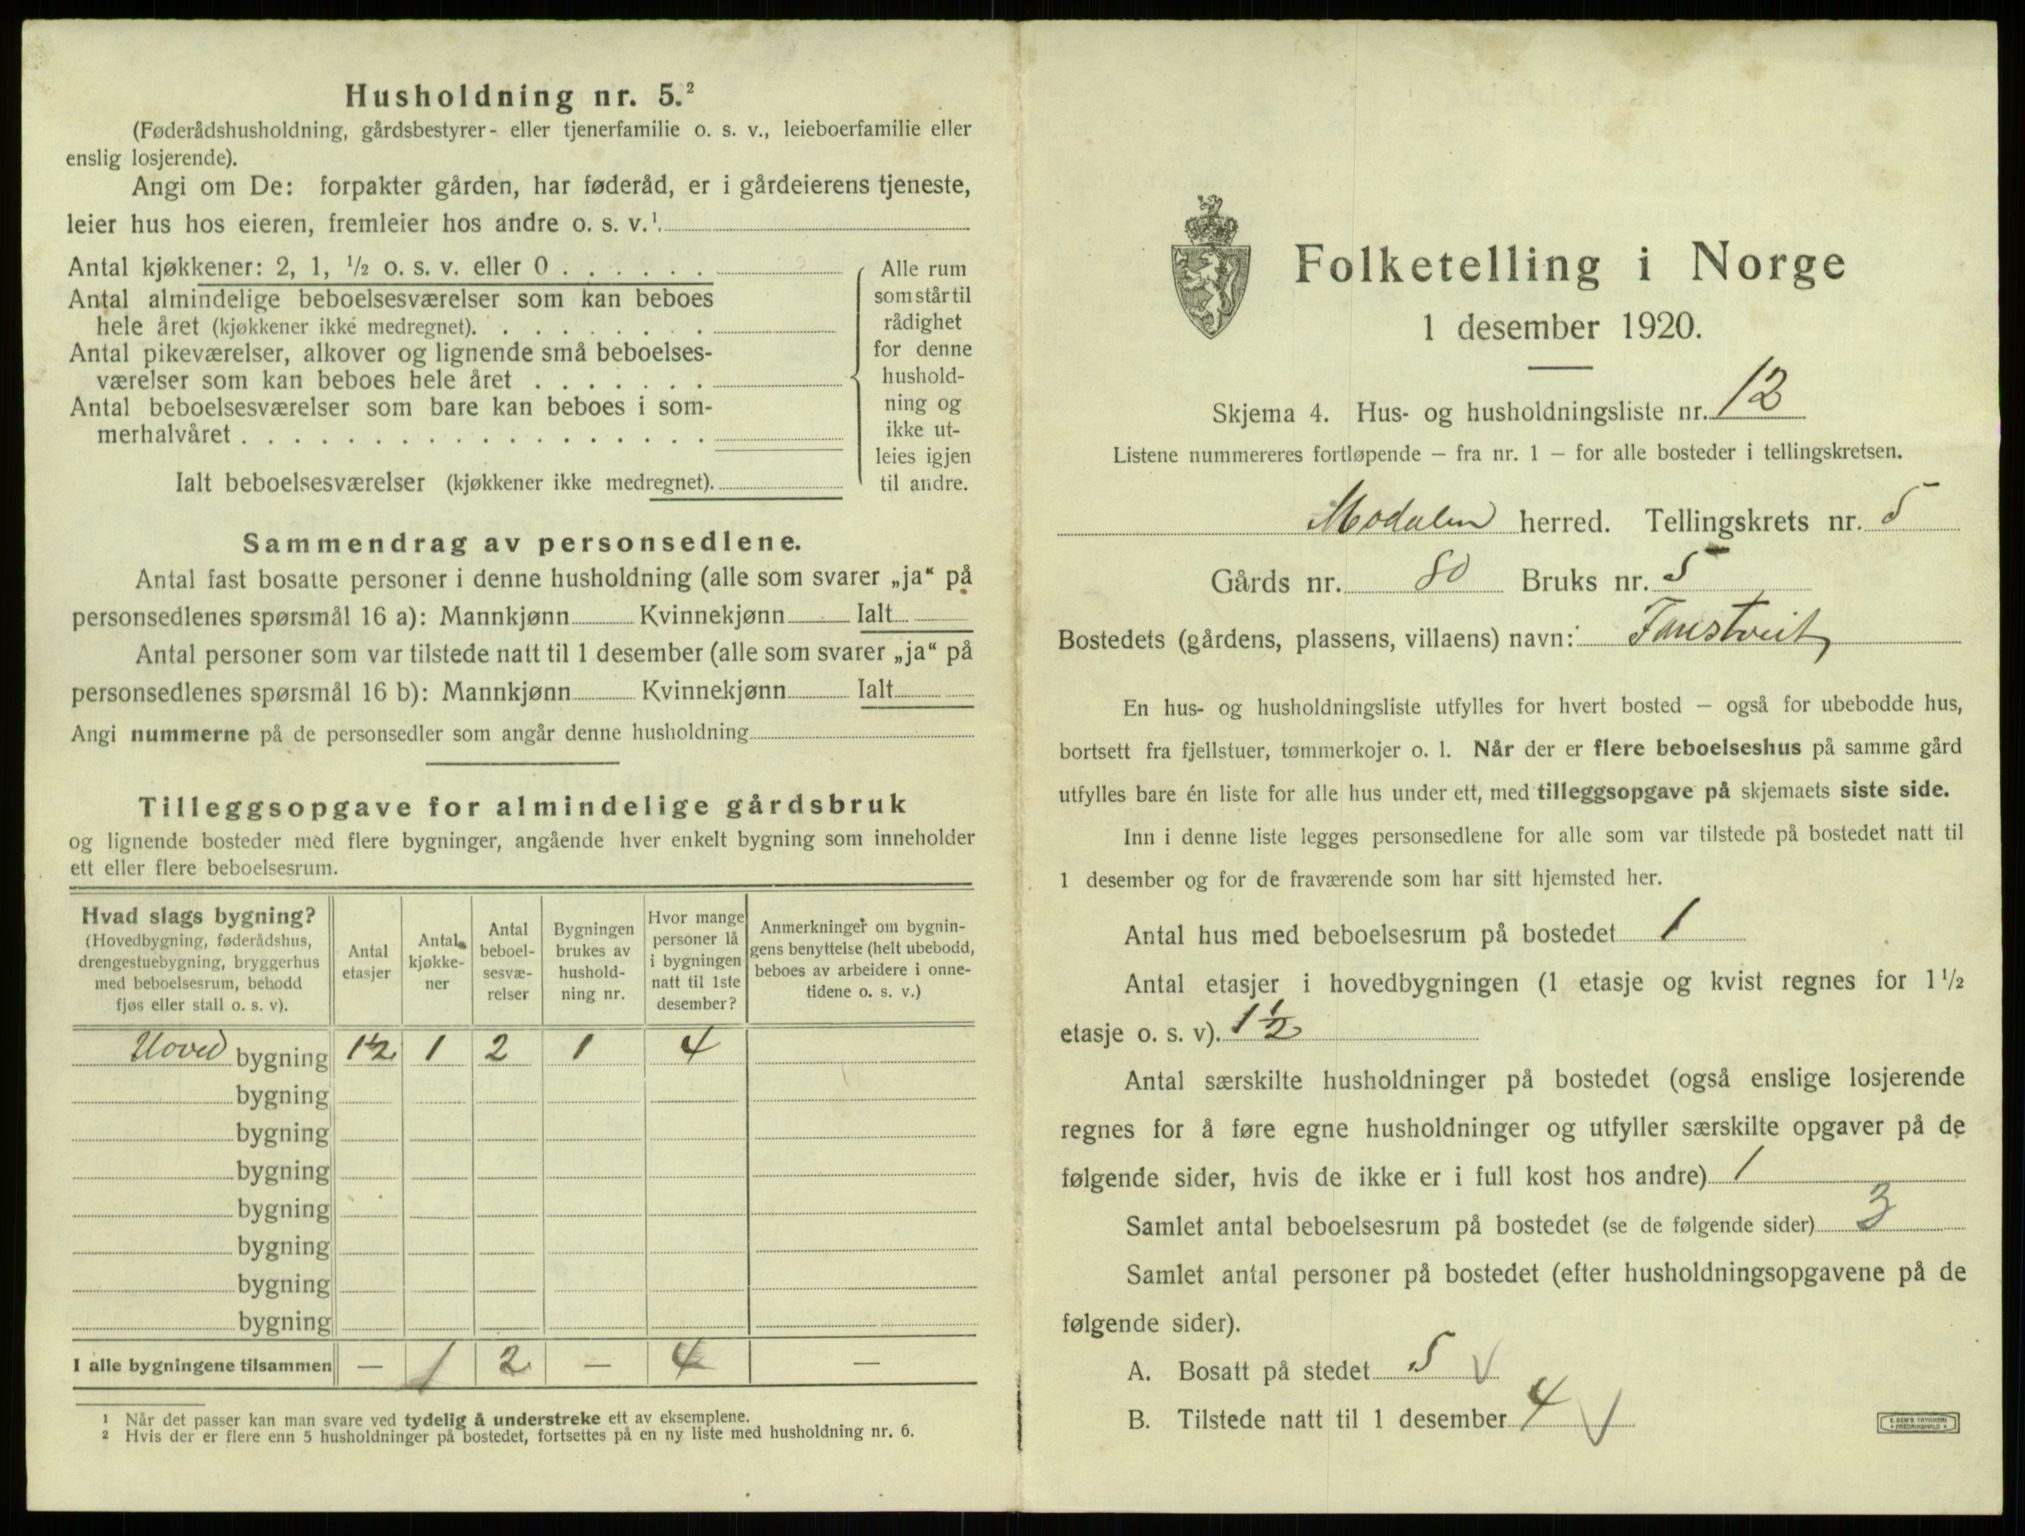 Husholdning nr. 5.²
(Føderådshusholdning, gårdsbestyrer- eller tjenerfamilie o. s. v., leieboerfamilie eller
enslig losjerende).
Angi om De: forpakter gården, har føderåd, er i gårdeierens tjeneste,
leier hus hos eieren, fremleier hos andre o. s. v.¹
Antal kjøkkener: 2, 1, ½ o. s. v. eller 0 . . . . . .
Antal almindelige beboelsesværelser som kan beboes
hele året (kjøkkener ikke medregnet). . . . . . . . .
Antal pikeværelser, alkover og lignende små beboelses-
værelser som kan beboes hele året . . . . . . .
Antal beboelsesværelser som bare kan beboes i som-
merhalvåret . . . . . . . . . . . . . . . . . .
Ialt beboelsesværelser (kjøkkener ikke medregnet).
Alle rum
som står til
rådighet
for denne
hushold-
ning og
ikke ut-
leies igjen
til andre.
Sammendrag av personsedlene.
Antal fast bosatte personer i denne husholdning (alle som svarer „ja“ på
personsedlenes spørsmål 16 a): Mannkjønn Kvinnekjønn Ialt
Antal personer som var tilstede natt til 1 desember (alle som svarer „ja“ på
personsedlenes spørsmål 16 b): Mannkjønn Kvinnekjønn Ialt
Angi nummerne på de personsedler som angår denne husholdning
Tilleggsopgave for almindelige gårdsbruk
og lignende bosteder med flere bygninger, angående hver enkelt bygning som inneholder
ett eller flere beboelsesrum.
Hvad slags bygning?
(Hovedbygning, føderådshus,
drengestuebygning, bryggerhus
med beboelsesrum, bebodd
fjøs eller stall o. s. v).
Antal
etasjer
Antal
kjøkke-
ner
Antal
beboel-
sesvæ-
relser
Bygningen
brukes av
hushold-
ning nr.
Hvor mange
personer lå
i bygningen
natt til 1ste
desember?
Anmerkninger om bygnin-
gens benyttelse (helt ubebodd,
beboes av arbeidere i onne-
tidene o. s. v.)
Hoved bygning 1½ 1 2 1 4
bygning
bygning
bygning
bygning
bygning
bygning
bygning
I alle bygningene tilsammen — 1 2 — 4 —
¹ Når det passer kan man svare ved tydelig å understreke ett av eksemplene.
² Hvis der er flere enn 5 husholdninger på bostedet, fortsettes på en ny liste med husholdning nr. 6.
Folketelling i Norge
1 desember 1920.
Skjema 4. Hus- og husholdningsliste nr. 12
Listene nummereres fortløpende – fra nr. 1 – for alle bosteder i tellingskretsen.
Modalen herred. Tellingskrets nr. 5
Gårds nr. 80 Bruks nr. 5
Bostedets (gårdens, plassens, villaens) navn:
En hus- og husholdningsliste utfylles for hvert bosted – også for ubebodde hus,
bortsett fra fjellstuer, tømmerkojer o. l. Når der er flere beboelseshus på samme gård
utfylles bare én liste for alle hus under ett, med tilleggsopgave på skjemaets siste side.
Inn i denne liste legges personsedlene for alle som var tilstede på bostedet natt til
1 desember og for de fraværende som har sitt hjemsted her.
Antal hus med beboelsesrum på bostedet 1
Antal etasjer i hovedbygningen (1 etasje og kvist regnes for 1 ½
etasje o. s. v). 1½
Antal særskilte husholdninger på bostedet (også enslige losjerende
regnes for å føre egne husholdninger og utfyller særskilte opgaver på de
følgende sider, hvis de ikke er i full kost hos andre) 1
Samlet antal beboelsesrum på bostedet (se de følgende sider) 3
Samlet antal personer på bostedet (efter husholdningsopgavene på de
følgende sider).
A. Bosatt på stedet 5 √
B. Tilstede natt til 1 desember 4 √